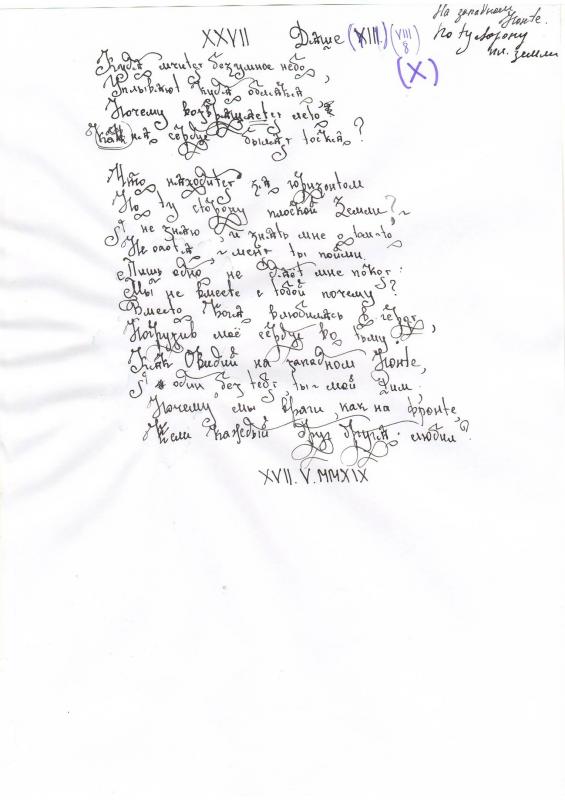 XXVII Даше (XIII.) (VIII 8) (X)
На западном Понте.
По ту сторону пл. земли
Куда мчится безумное небо,
Уплывают куда облака
Почему возвращается лето
Как на сердце бывает тоска?
Что находится за горизонтом
По ту сторону плоской Земли? ~
Я не знаю, и знать мне о том-то
Неохота, ~ меня ты пойми.
Лишь одно не даёт мне покоя:
Мы не вместе с тобой почему?
Вместо Бога влюбилась в героя,
Погрузив моё сердце во тьму.
Как Овидий на западном Понте,
Я один без тебя, ты ~ мой Рим.
Почему мы враги, как на фронте,
Если каждый друг другом любим?
XVII.V.MMXIX